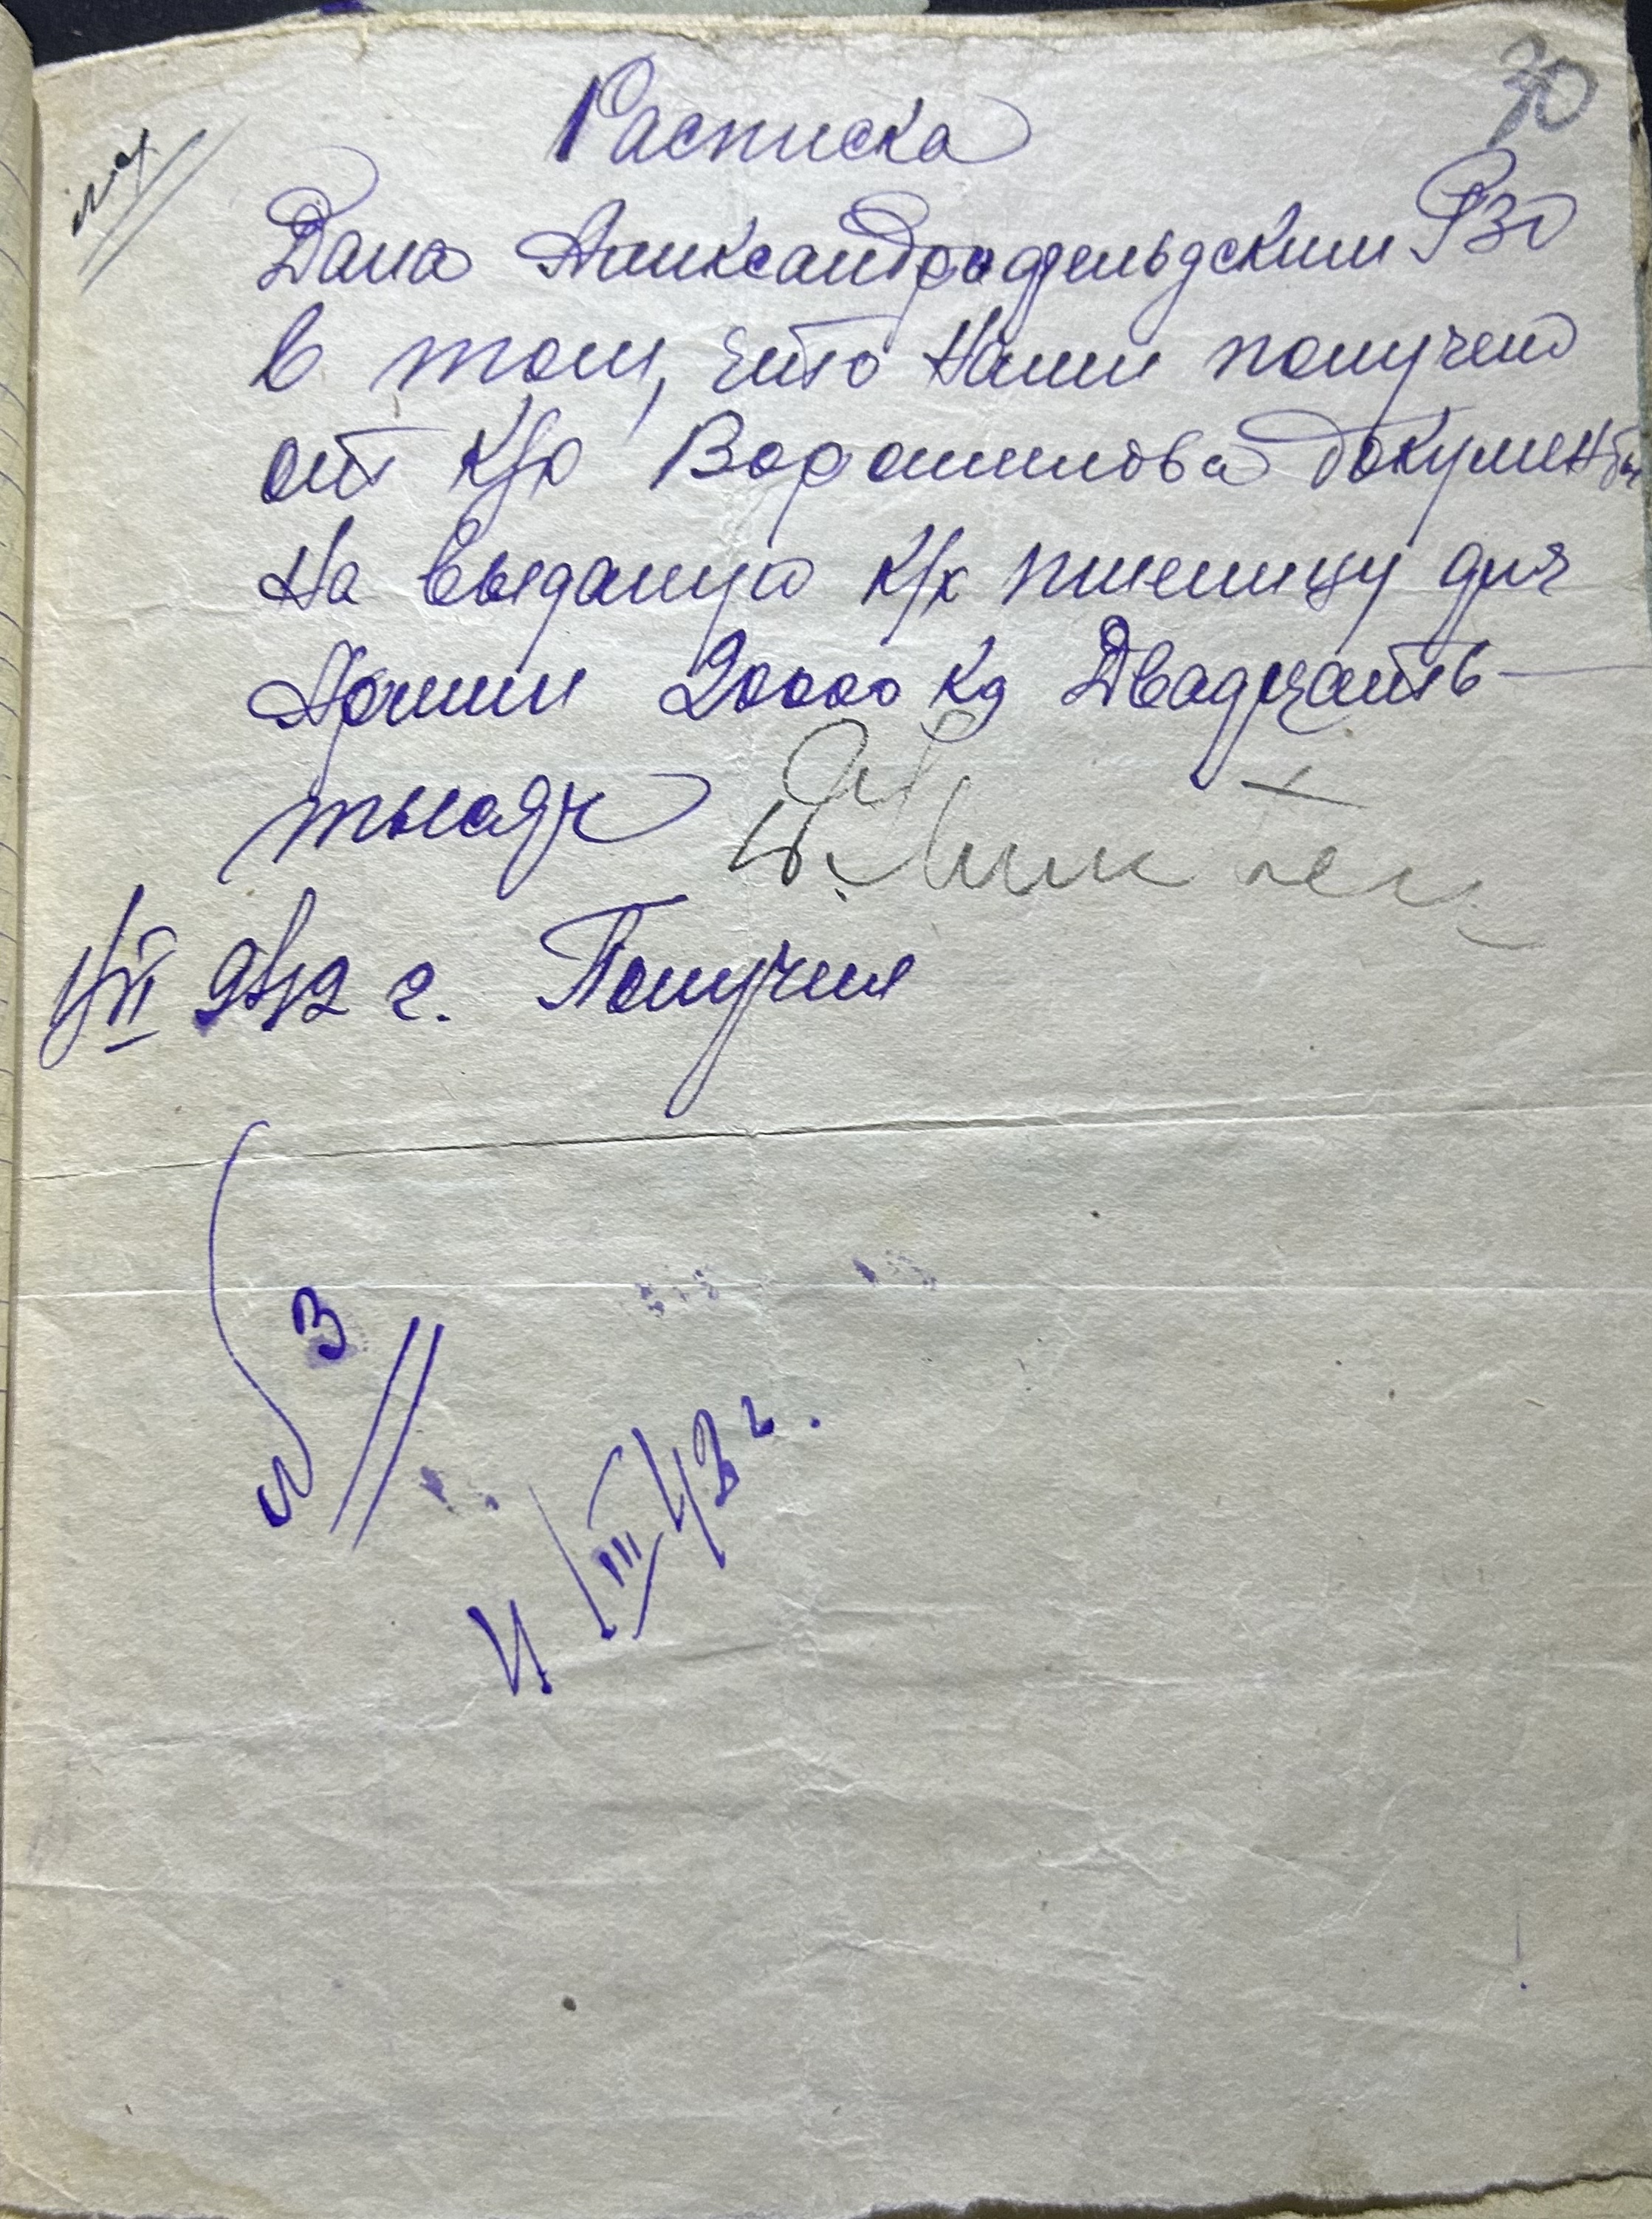 70
Расписка
Дана Александрфельдским РЗО
в том, что нами получено
от к/х Ворошилова документы
на выданую к/х пшеницу для
Армии 20000 кг Двадцать —
тысяч
942 г. Получил
3
III 43 г.